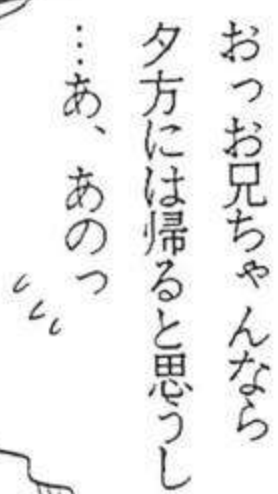 おっお兄ちゃんなら
夕方には帰ると思うし
…あ、あのっ